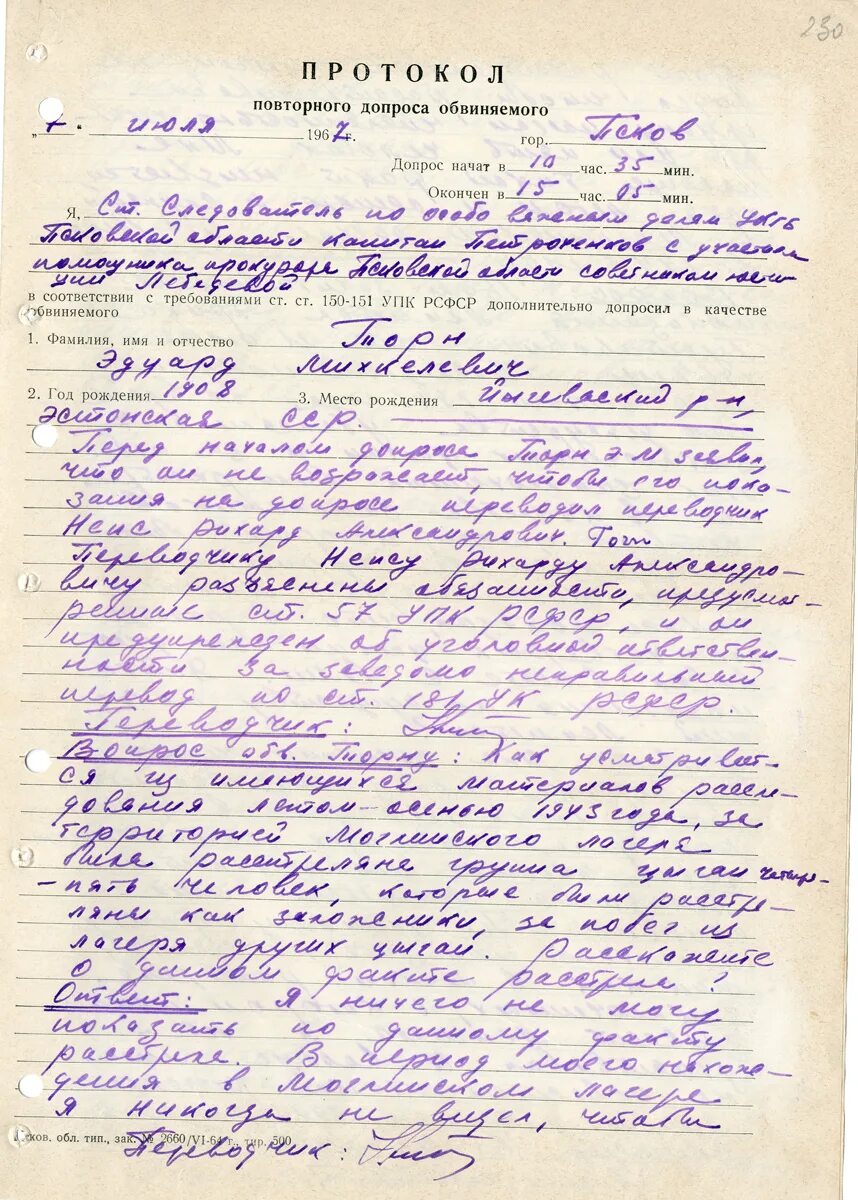 230
ПРОТОКОЛ
повторного допроса обвиняемого
„7“ июля 1967г. гор. Псков
Допрос начат в 10 час. 35 мин.
Окончен в 15 час. 05 мин.
Я, Ст. Следователь по особо важным делам УКГБ
Псковской области капитан Петроченков с участием
помощника прокурора Псковской области советником юсти-
ции Лебедевой
в соответствии с требованиями ст. ст. 150-151 УПК РСФСР дополнительно допросил в качестве
обвиняемого
1. Фамилия, имя и отчество Торн
Эдуард Михкелевич
2. Год рождения 1908 3. Место рождения Йыгеваский р-н,
Эстонская ССР.
Перед началом допроса Торн Э.М. заявил,
что он не возражает, чтобы его пока-
зания на допросе переводил переводчик
Неис Рихард Александрович.
Переводчику Неису Рихарду Александро-
вичу разъяснены обязанности, предусмот-
ренные ст. 57 УПК РСФСР, и он
предупрежден об уголовной ответствен-
ности за заведомо неправильный
перевод по ст. 181 УК РСФСР.
Переводчик:
Вопрос обв. Торну: Как усматривает-
ся из имеющихся материалов рассле-
дования летом-осенью 1943 года, за
территорией Моглинского лагеря
была расстреляна группа цыган четыре-
-пять человек, которые были расстре-
ляны как заложники, за побег из
лагеря других цыган. Расскажите
о данном факте расстрела?
Ответ: Я ничего не могу
показать по данному факту
расстрела. В период моего нахож-
дения в Моглинском лагере
я никогда не видел, чтобы
ков. обл. тип., зак. № 2660/VI-64 г., тир. 500
Переводчик: